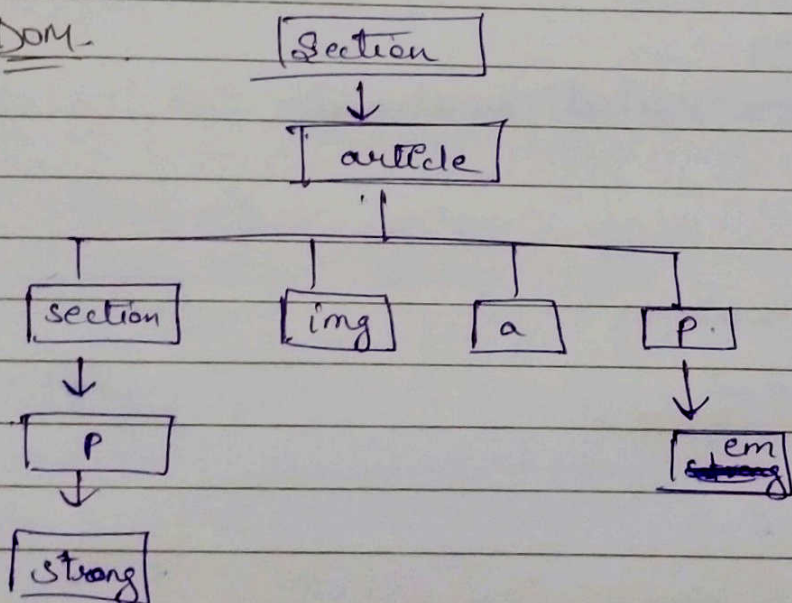 DOM.
Section
article
section img a p.
p em
strong